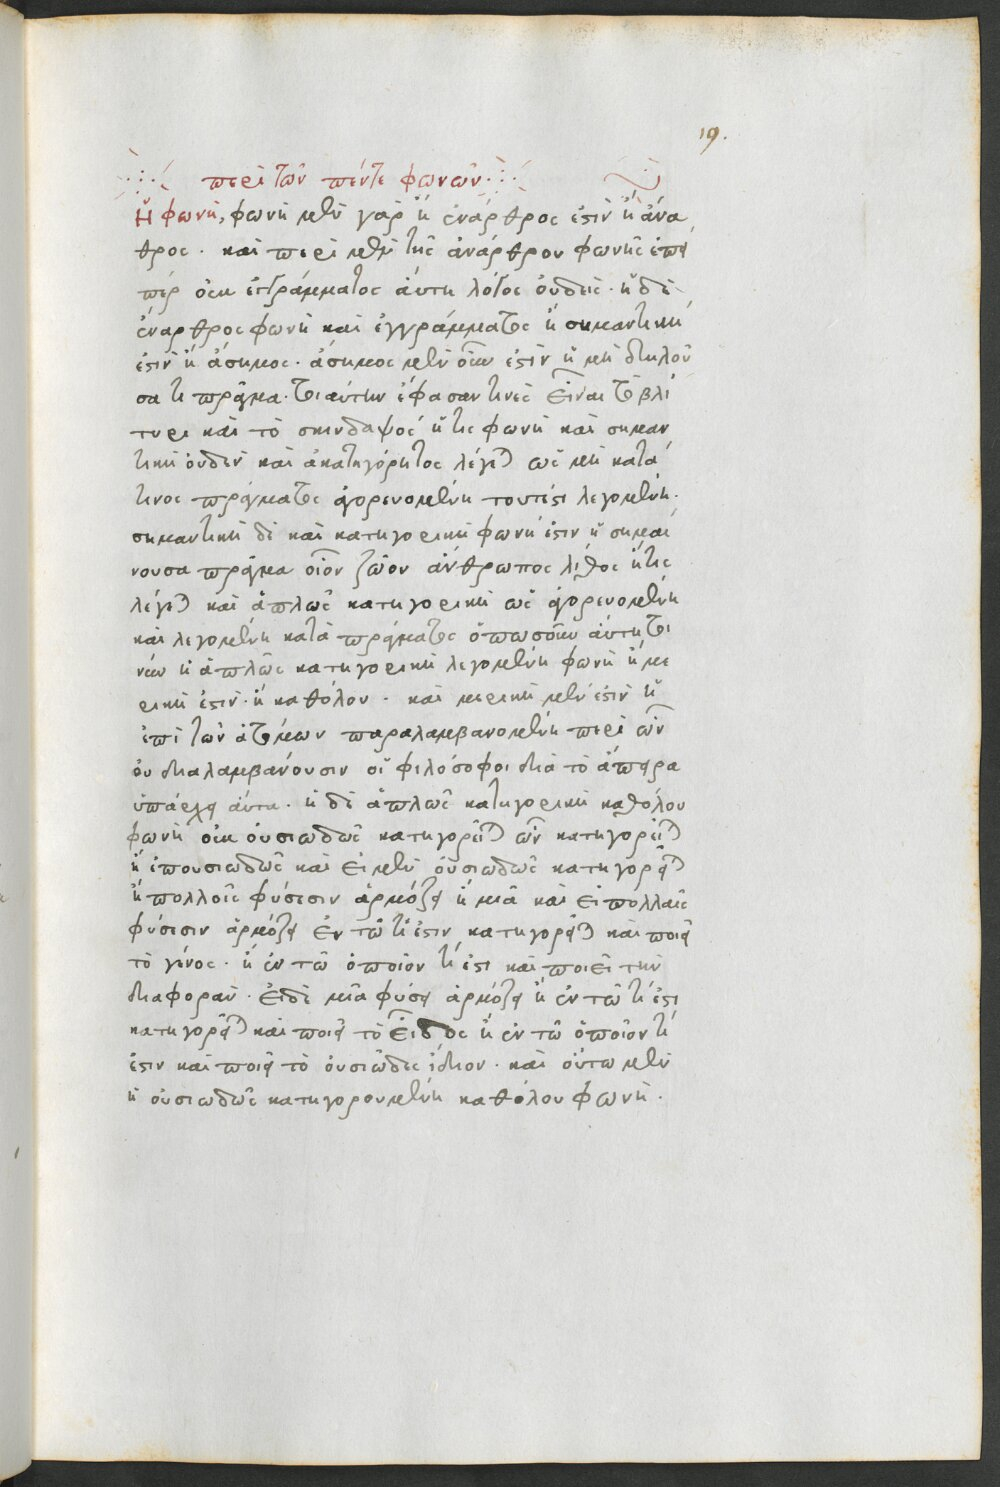 19.
περὶ τῶν πέντε φωνῶν
Ἡ φωνὴ, φωνὴ μὲν γὰρ ἢ ἐνάρθρος ἐστὶν ἢ ἄνα
θρος. καὶ περὶ μὲν τῆς ἀνάρθρου φωνῆς ἐπεὶ
περ οὐκ ἐγγράμματος ἀυτη λόγος ὀυδεὶς. ἡ δὲ
ἐναρθρος φωνὴ καὶ ἐγγράμματος ἢ σημαντικὴ
ἐστὶν ἢ ἄσημος. ἄσημος μὲν οὖν ἐστὶν ἡ μὴ δηλοῦ
σα τι πρᾶγμα. τοιαύτην ἐφασαν τινὲς εἶναι τὸ βλί
τυρι καὶ τὸ σκινδαψὸς ἥτις φωνὴ καὶ σημαν
τικὴ ὀυδὲν καὶ ἀκατηγόρητος λέγεται ὡς μὴ κατά
τινος πράγματος ἀγορευομένη τουτέστι λεγομένη.
σημαντικὴ δὲ καὶ κατηγορικὴ φωνή ἐστιν ἡ σημαί
νουσα πρᾶγμα οἷον ζῶον ἄνθρωπος λίθος ἥτις
λέγεται καὶ ἁπλῶς κατηγορικὴ ὡς ἀγορευομένη
καὶ λεγομένη κατὰ πράγματος ὁπωσοῦν ἀύτη τοι
νύν ἡ ἁπλῶς κατηγορικὴ λεγομένη φωνὴ ἢ με
ρικὴ ἐστὶν. ἢ καθόλου. καὶ μερικὴ μὲν ἐστὶν ἡ
ἐπὶ τῶν ἀτόμων παραλαμβανομένη περὶ ὧν
ὀυ διαλαμβανόυσιν οἱ φιλόσοφοι διὰ τὸ ἄπειρα
ὑπάρχειν ἀύτα. ἡ δὲ ἁπλῶς κατηγορικὴ καθόλου
φωνὴ οὐκ ὀυσιωδῶς κατηγορεῖται ὧν κατηγορεῖται
ἢ ἐπουσιωδῶς καὶ εἰ μὲν ὀυσιωδῶς κατηγορεῖται
ἢ πολλοῖς φύσεσιν ἁρμόζει ἢ μιᾶ καὶ εἰ πολλαῖς
φύσεσιν ἁρμόζει ἐν τῶ τί ἐστιν κατηγορεῖται καὶ ποιεῖ
τὸ γένος. ἢ ἐν τῶ ὁποῖον τί ἐστι καὶ ποιεῖ τὴν
διαφορὰν. εἰ δὲ μιᾶ φύσει ἁρμόζει ἢ ἐν τῶ τί ἐστι
κατηγορεῖται καὶ ποιεῖ τὸ εἶδος ἢ ἐν τῶ ὁποῖον τί
ἐστιν καὶ ποιεῖ τὸ ὀυσιῶδες ἴδιον. καὶ οὕτω μὲν
ἡ ὀυσιωδῶς κατηγορουμένη καθόλου φωνὴ.